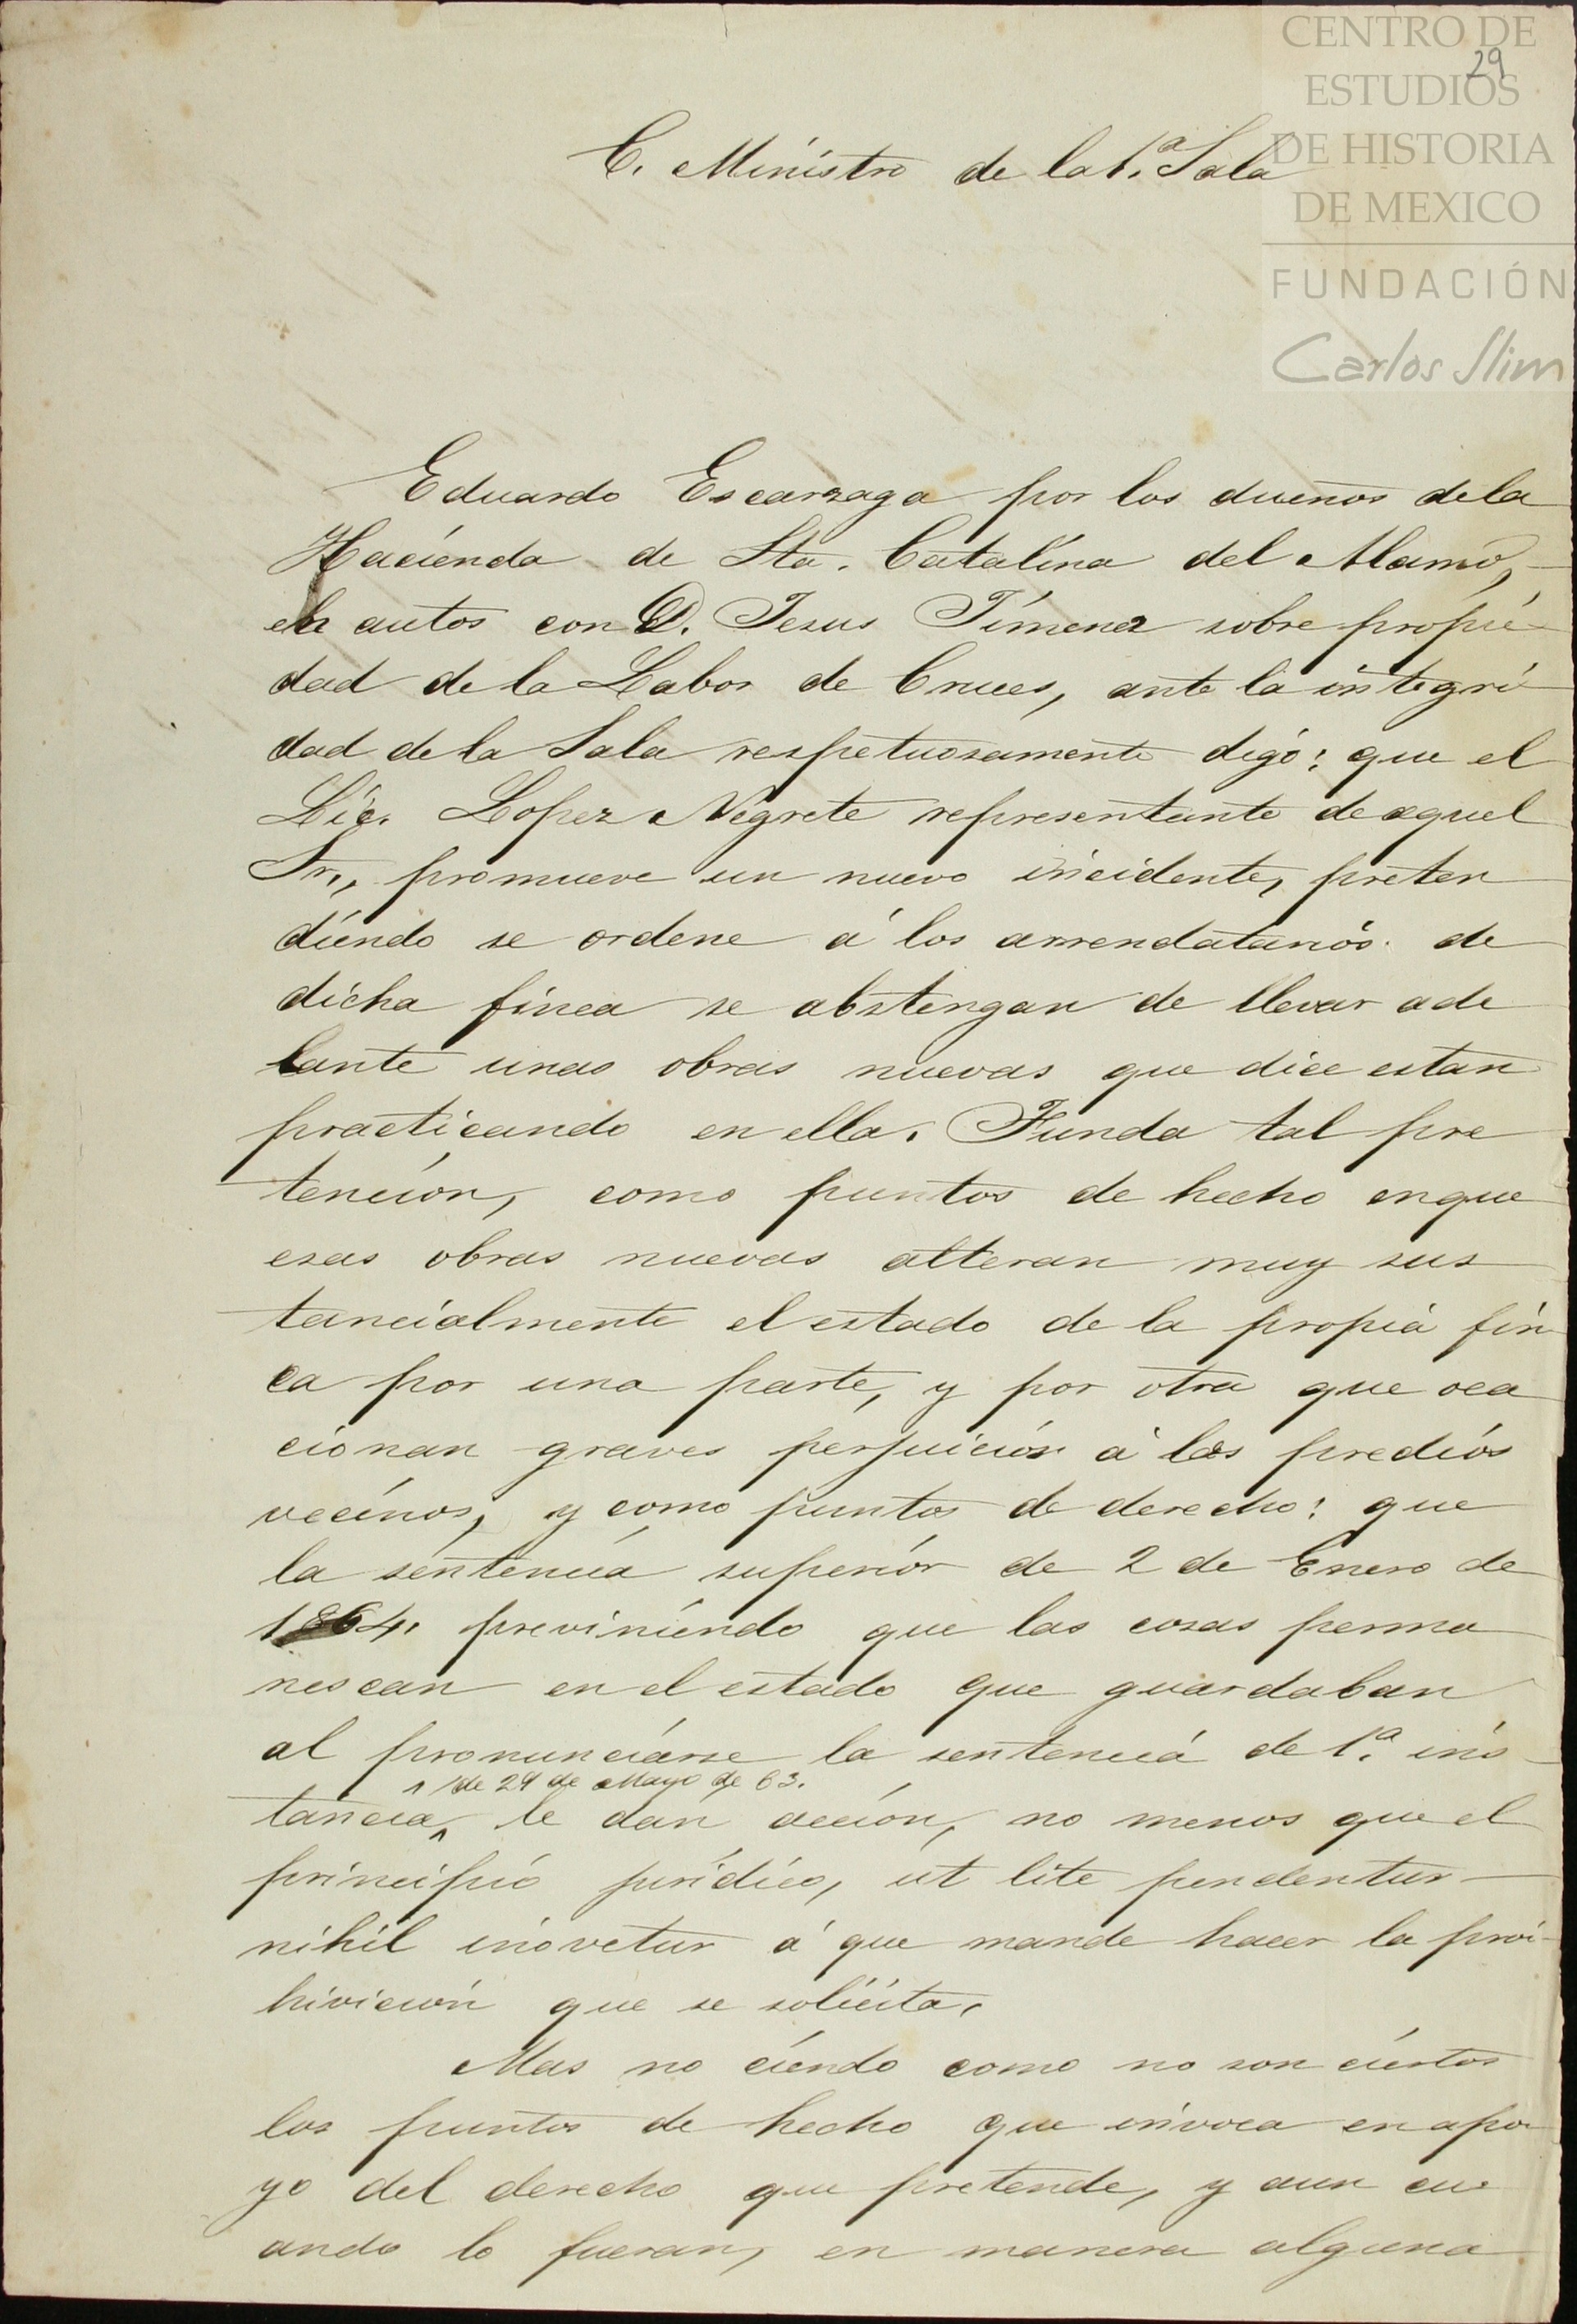 CENTRO DE
29
ESTUDIOS
DE HISTORIA
DE MEXICO
FUNDACIÓN
Carlos Slim
C. Ministro de la 1.ª Sala
Eduardo Escarzaga por los dueños de la
Hacienda de Sta. Catalina del Alamo,
en autos con D. Jesus Jimenez sobre propie
dad de la Labor de Cruces, ante la integri
dad de la Sala respetuosamente digo: que el
Lic. Lopez Negrete representante de aquel
Sr., promueve un nuevo incidente, preten
diendo se ordene á los arrendatarios de
dicha finca se abstengan de llevar ade
lante unas obras nuevas que dice estan
practicando en ella. Funda tal pre
tencion, como puntos de hecho en que
esas obras nuevas alteran muy sus
tancialmente el estado de la propia fin
ca por una parte, y por otra que oca
cionan graves perjuicios á los predios
vecinos, y como puntos de derecho: que
la sentencia superior de 2 de Enero de
1864. previniendo que las cosas perma
nescan en el estado que guardaban
al pronunciarse la sentencia de 1.ª ins
de 29 de Mayo de 63.
tancia, le dan accion, no menos que el
principio juridico, ut lite pendentur
nihil inovetur á que mande hacer la proi
hivicion que se solicita.
Mas no ciendo como no son ciertos
los puntos de hecho que invoca en apo
yo del derecho que pretende, y aun cu
ando lo fueran, en manera alguna